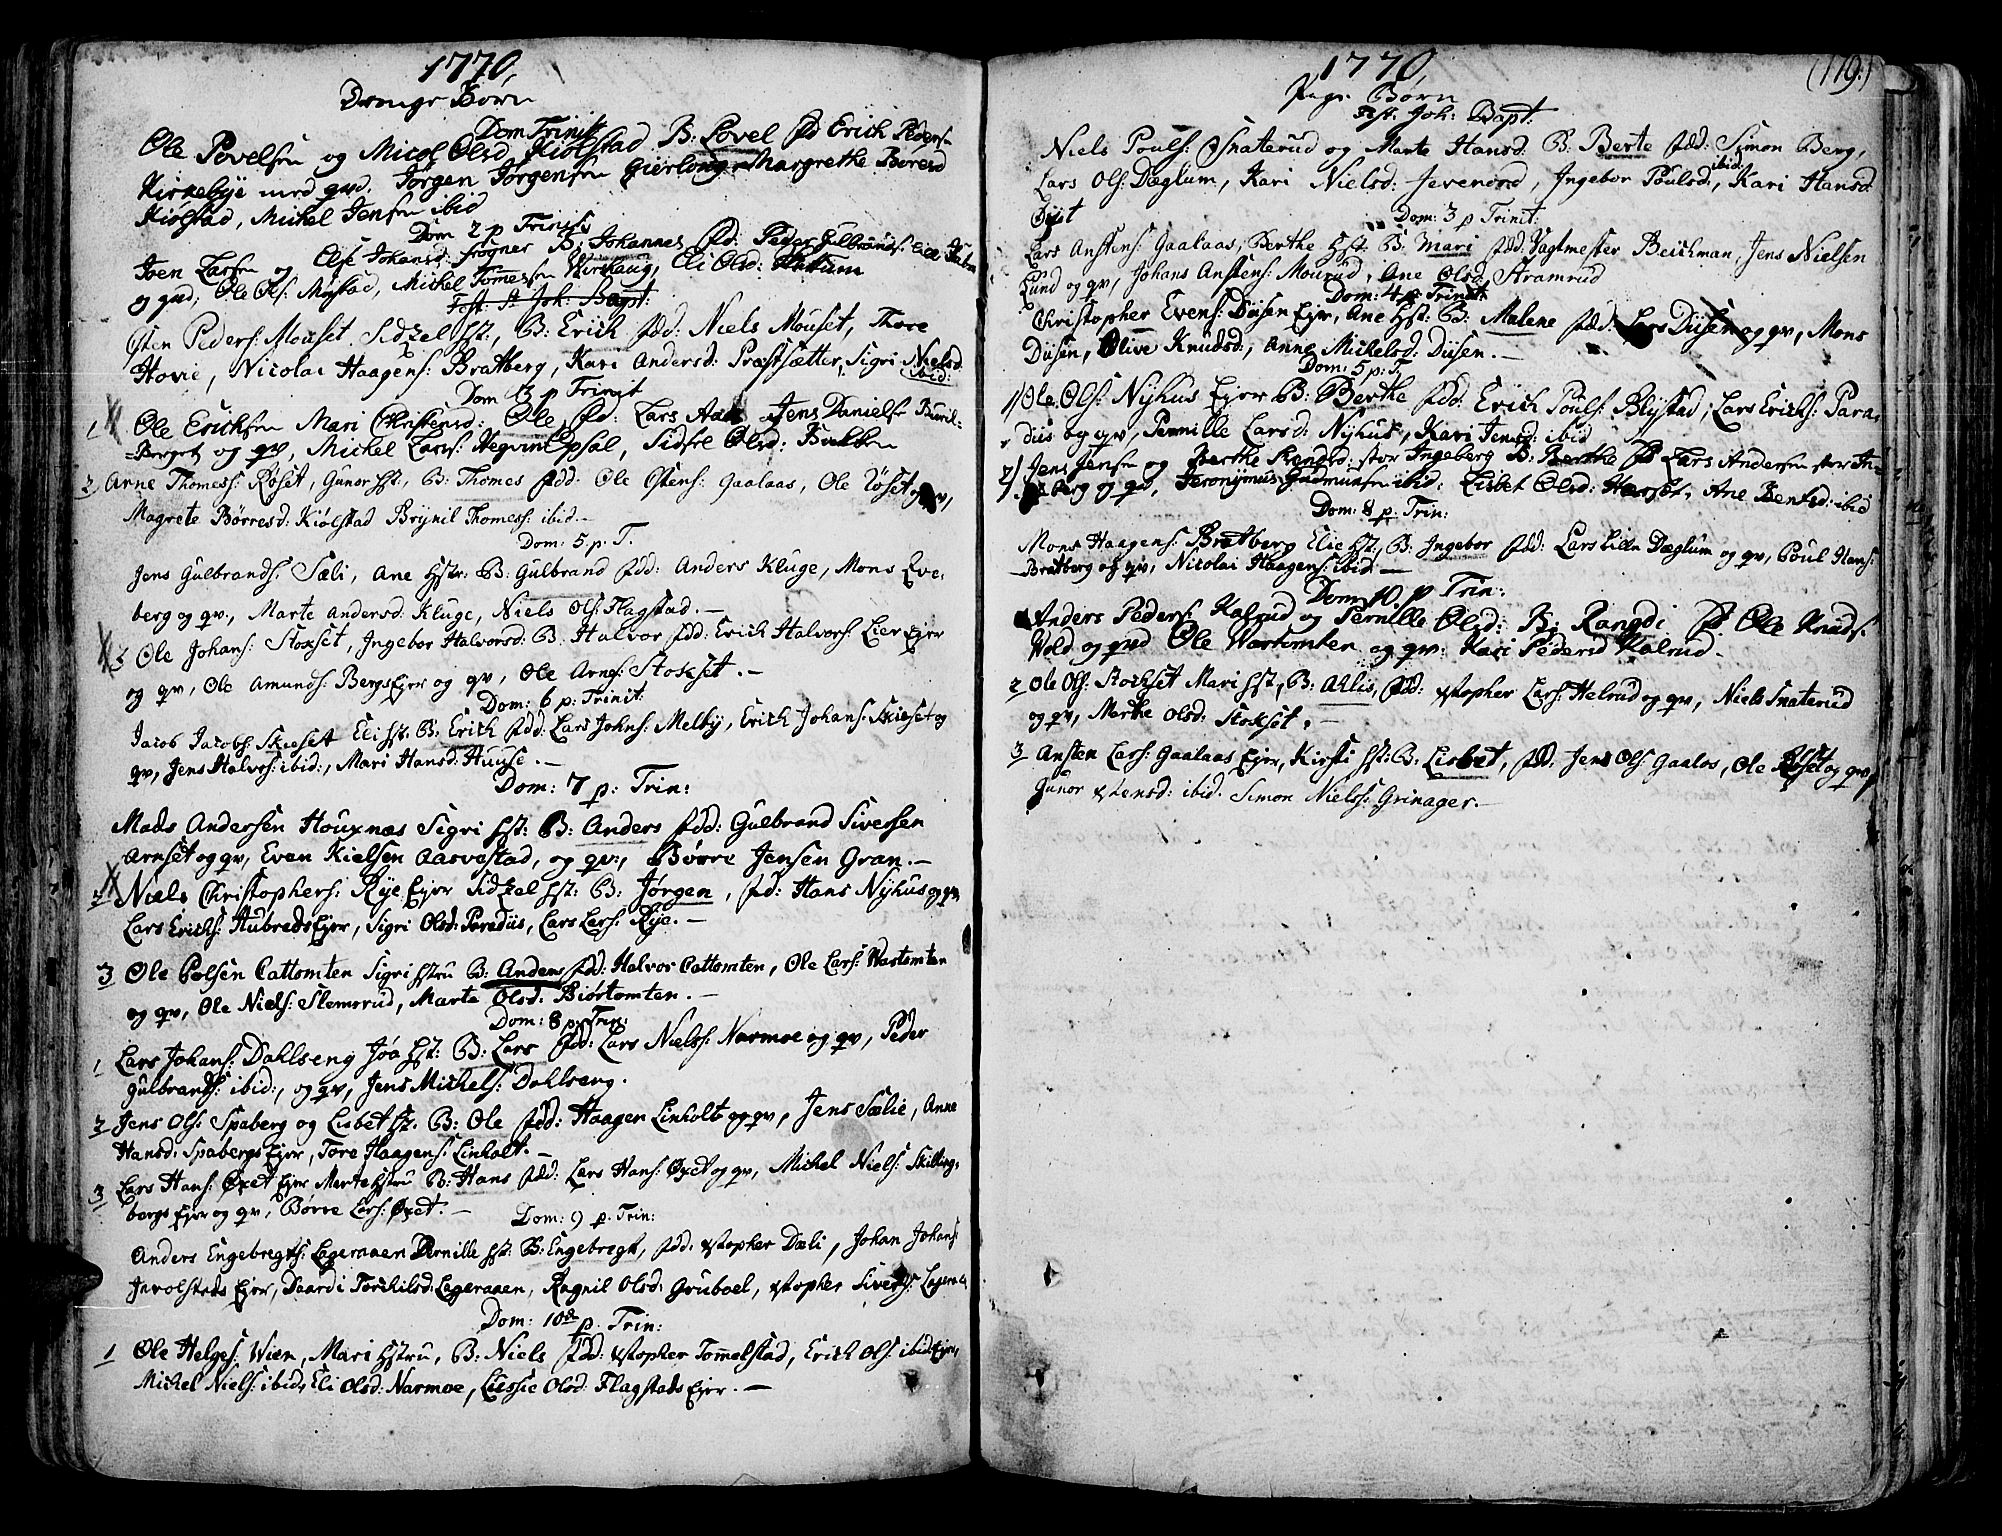 1770,
Drenge Børn
Dom Trinit
Ole Povelsen og Olsd Kiølstad B: Povel Erich Peders
Kirkebÿe med qvd. Jörgen Jörgensen Margrethe Boresd
Kiølstad, Michel Jensen ibid
Dom 2 p Trinit
Iven Larsen og Else Johansd: Frogner B: Johannes fd: Peder Gulbrands:
og qvd, Ole Ols: Mÿstad, Michel Tomesen Kirkhaug, Eli Olsd:
Fest: St Joh: Bapt:
Østen Peders: Mouset Sidzel Hst:, B: Erich fdd: Niels Mouset, Thore
Hovie, Nicolai Haagens: Bratberg, Kari Andersd: Præstsætter, Sigri Nielsd:
ibid:
Dom 3 p Trinit
1 Ole Ericksen Mari Christensd: Ole, fd: Lars Jens Danielsen
Berget og qv, Michel Lars: Opsal, Sidsel Olsd: Bakken
2 Arne Thomess: Röset, Gunor Hst:, B: Thomes fdd: Ole Østens: Gaalaas, Ole Röset og qv,
Magrete Börresd: Kiølstad Brÿnil Thomess: ibid.—
Dom: 5. p: T.
Jens Gulbrands: Sæli, Ane Hstr: B: Gulbrand fdd: Anders Kluge, Mons Eve-
berg og qv:, Marte Andersd: Kluge, Niels Ols: Flagstad.—
Ole Johans: Stoxset, Ingebor Halvorsd: B: Halvor fdd: Erich Halvors: Lier Ejer
og qv, Ole Amunds: Bergs Ejer og qv, Ole Arnes: Stokset.—
Dom: 6 p: Trinit:
Jacob Jacobs: Skieset Eli Hst: B: Erich fdd: Lars Johns: Melbÿ, Erich Johans: Skieset og
qv, Jens Halvors: ibid:, Mari Hansd: Huuse.—
Dom: 7 p: Trin:
Mads Andersen Houxnæs Sigri Hst: B: Anders fdd: Gulbrand Siversen
Arnset og qv, Even Kielsen Aasvestad, og qv:, Börre Jensen Gran.—
2 Niels Christophers: Rÿe Ejer Sidzel Hst: B: Jørgen, fd: Hans Nÿhus og qv,
Lars Erichs: Hubreds Ejer, Sigri Olsd: Paradiis, Lars Lars: Rÿe.—
3 Ole Polsen Cattomten Sigri Hstru B: Anders fdd: Halvor Cattomten, Ole Lars: Wastomten
og qv, Ole Niels: Slemsrud, Marte Olsd: Biörtomten.—
Dom: 8 p: Trin:
1 Lars Johans: Dahlseng Jöa Hst: B: Lars fdd: Lars Niels: Narmoe og qv, Peder
Gulbrands: ibid:, og qv, Jens Michels: Dahlseng.
2 Jens Ols: Spaberg og Lisbet Hst. B: Ole fdd: Haagen Linholt og qv, Jens Sælie, Anne
Hansd: Spabergs Ejer, Tore Haagens: Linholt.—
3 Lars Hans: Øxet Ejer Marte Hstru B: Hans fdd: Lars Hans: Øxet og qv, Michel Niels: Skilling-
bergs Ejer og qv, Börre Lars: Øxet.—
Dom: 9 p. Trin:
Anders Engebregts: Lageraaen Pernille Hst: B: Engebregt, fdd: Xstopher Dæli, Johan Johans:
Jevolstads Ejer, Torchilsd: Lageraaen, Ragnil Olsd: Gruboel, Xstopher Sivers: Lageraa
Dom: 10de p. Trin:
1 Ole Helges: Wien, Mari Hstru, B: Niels fdd: Xstopher Tommelstad, Erich Ols: ibid Ejer,
Michel Niels: ibid, Eli Olsd: Narmoe, Lussie Olsd: Flagstads Ejer.—
1770, (119.)
Pige Børn
Fest: Joh: Bapt:
Niels Pouls: Snaterud og Marte Hansd: B: Berte fdd: Simon Berg,
Lars Ols: Dæglum, Kari Nielsd: Ingebor Poulsd: ibid:, Kari Hansd:

Dom: 3 p Trinit:
Lars Anstens: Gaalaas, Berthe Hst: B: Mari fdd: Vagtmester Beichman, Jens Nielsen
Lund og qv, Johans Anstens: Mourud, Ane Olsd: Stramrud
Dom: 4 p: Trinit:
Christopher Evens: Diisen Ejer, Ane Hst: B: Malene fdd: Lars Diisen og qv, Mons
Diisen, Olive Knudsd:, Anne Michelsd: Diisen.—
Dom: 5 p: T.
1) Ole Ols: Nÿhus Ejer B: Berthe fdd: Erich Pouls: Blÿstad, Lars Erichs: Para-
diis og qv, Pernille Larsd: Nÿhus, Kari Jensd: ibid
2) Jens Jensen og Berthe stor Ingeberg B: Berthe fd Lars Andersen stor In-
geberg og qv, Jeronÿmus ibid: Lisbet Olsd: Ane Bentsd: ibid
Dom: 8 p: Trin:
Mons Haagens: Bratberg Elie Hst, B: Ingebor fdd: Lars Lille Dæglum og qv, Poul Hans:
Bratberg og qv, Nicolai Haagens: ibid:—
Dom: 10. p Trin:
Anders Peders: Kalrud og Pernille Olsd: B: Rangdi fd Ole Knuds:
Vold og qvd Ole Wastomten og qv: Kari Pedersd Kalrud.
2 Ole Ols: Stockset Mari Hst, B: Ahlis, fdd: Xstopher Lars: Helrud og qv, Niels Snaterud
og qv, Marthe Olsd: Stokset.—
3 Ansten Lars: Gaalaas Ejer, Kirsti Hst: B: Lisbet, fdd: Jens Ols: Gaalas, Ole Röset og qv,
Gunor Xstensd: ibid. Simon Nielss: Grinager.—